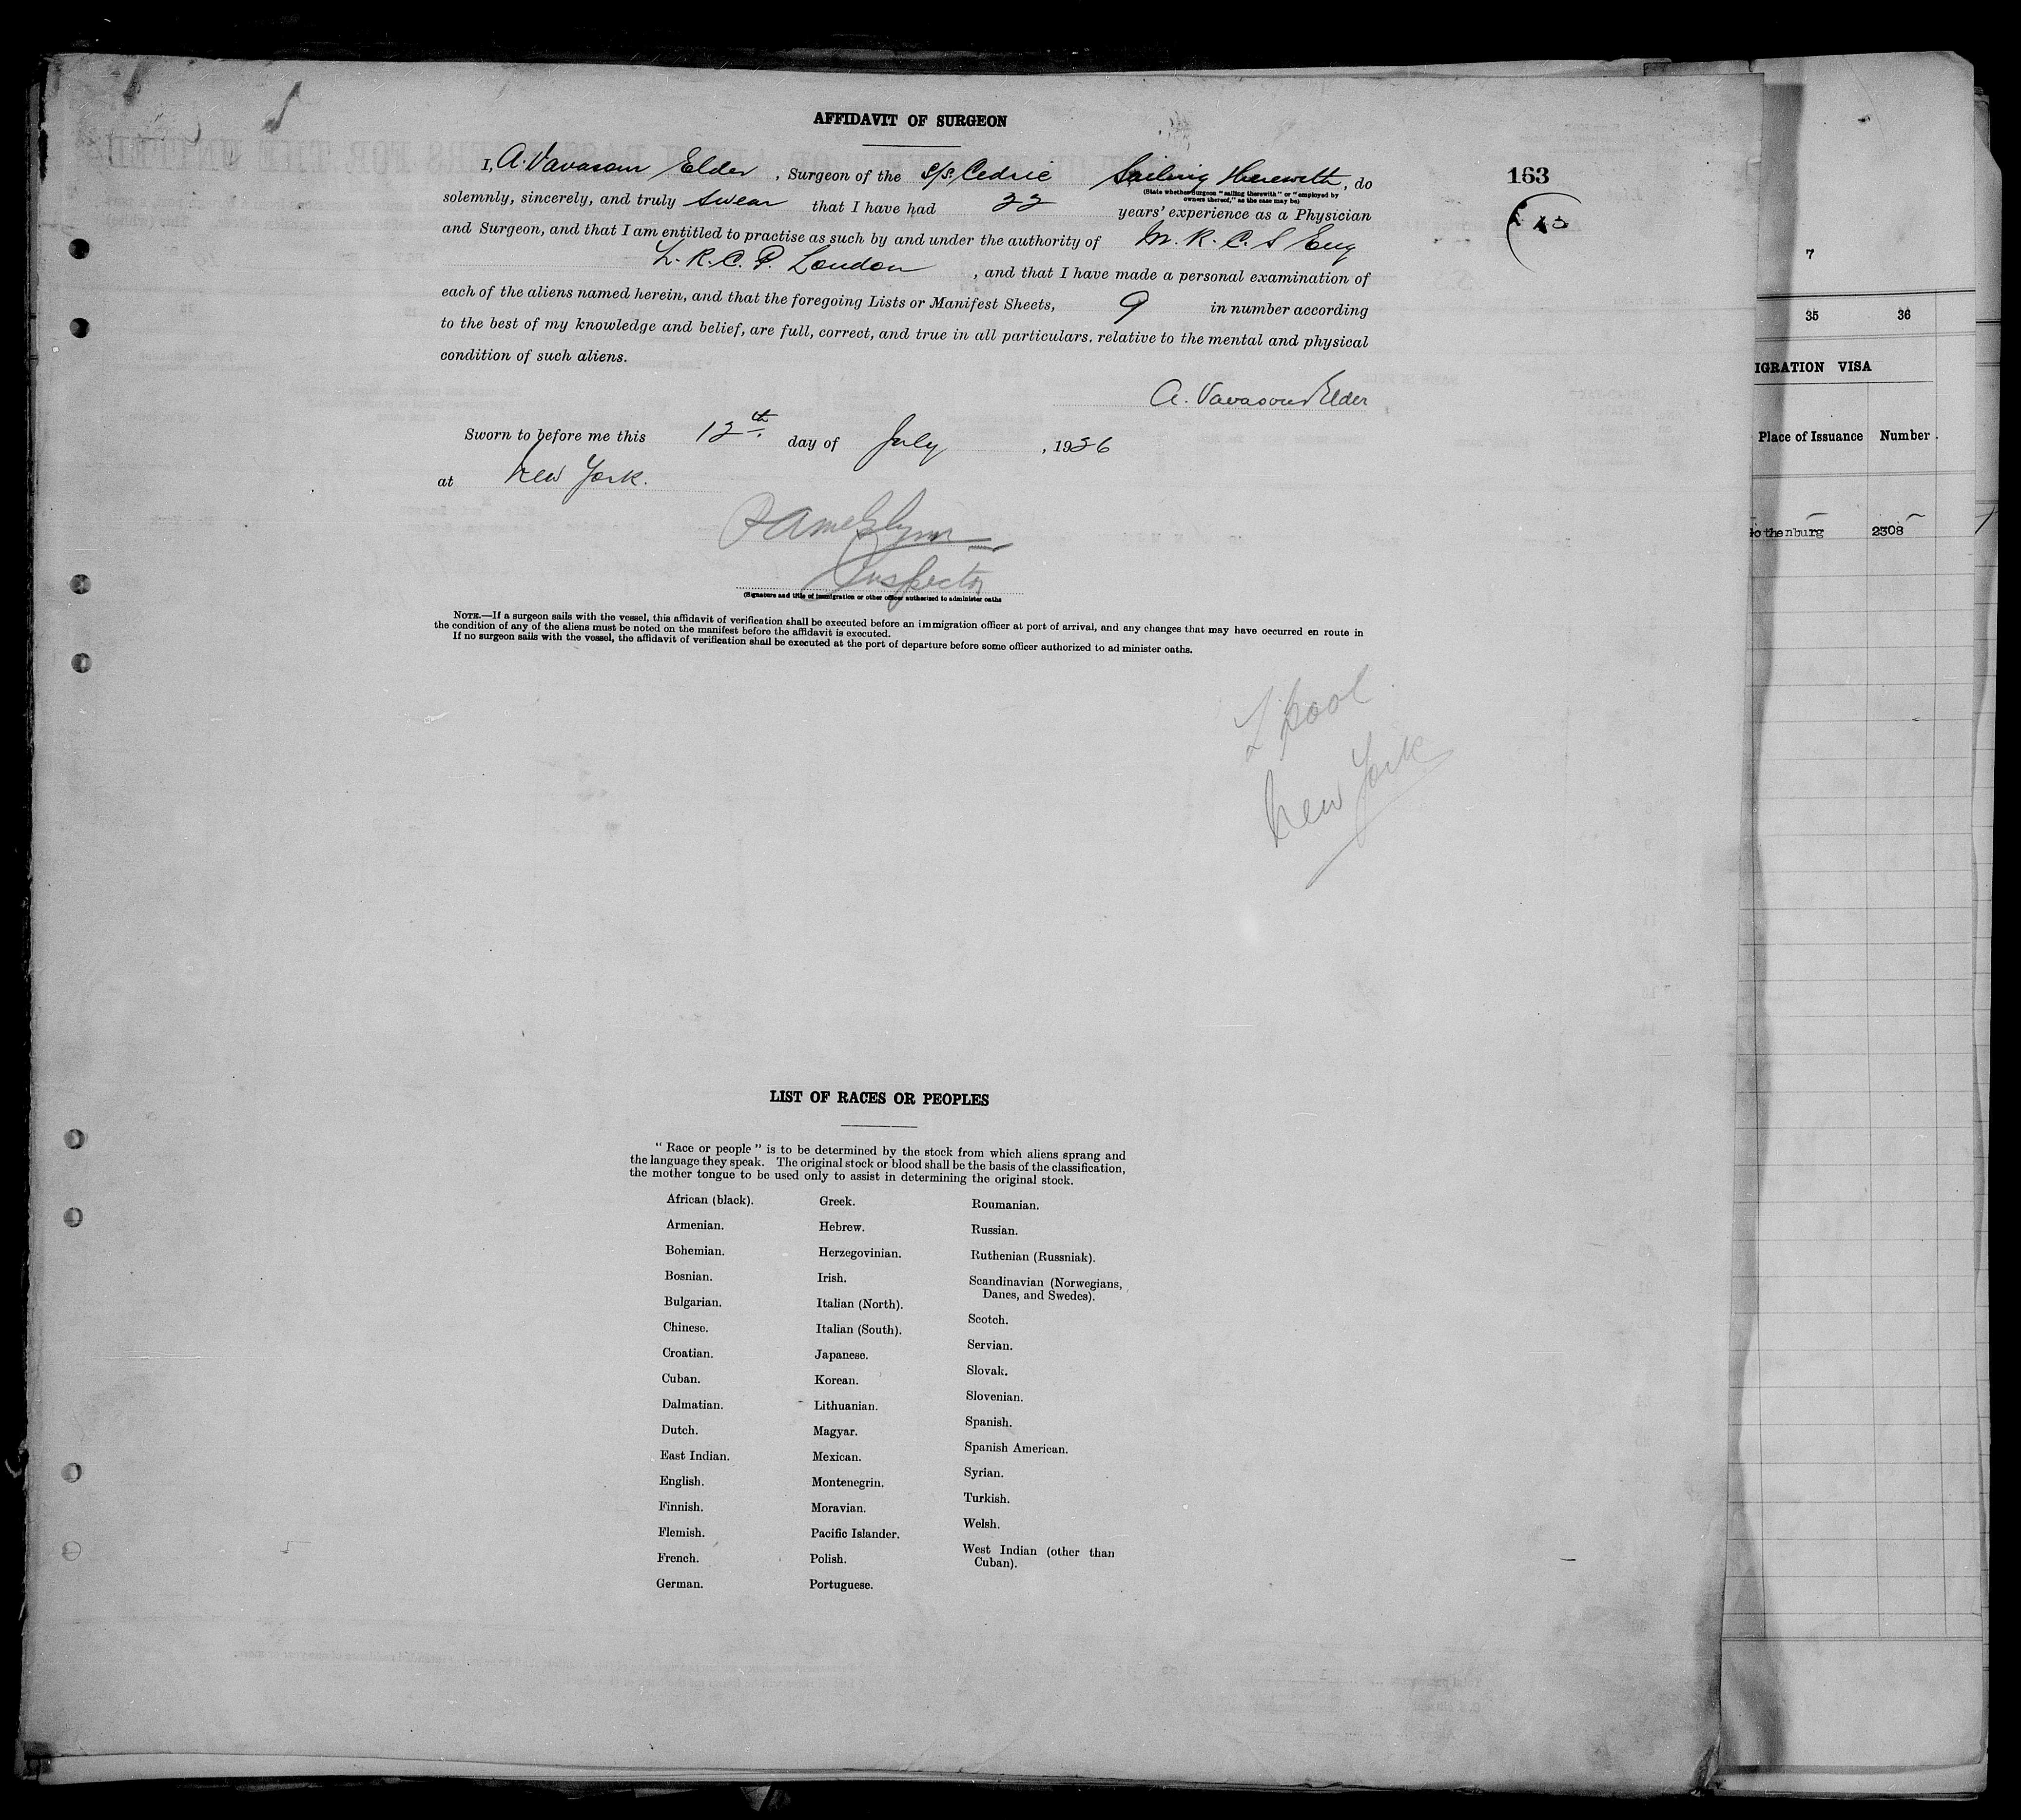 AFFIDAVIT OF SURGEON
163
I, A. Vavasour Elder, Surgeon of the S/S. Cedric Sailing Herewith, do
(State whether Surgeon "sailing therewith" or "employed by
owners thereof," as the case may be)
solemnly, sincerely, and truly swear that I have had 22 years' experience as a Physician
and Surgeon, and that I am entitled to practise as such by and under the authority of M. R. C. S Eng
L. R. C. P. London, and that I have made a personal examination of
each of the aliens named herein, and that the foregoing Lists or Manifest Sheets, 9 in number according
to the best of my knowledge and belief, are full, correct, and true in all particulars, relative to the mental and physical
condition of such aliens.
A. Vavasour Elder
Sworn to before me this 12th. day of July, 1926
at New York.
Inspector
(Signature and title of immigration or other officer authorized to administer oaths
NOTE.—If a surgeon sails with the vessel, this affidavit of verification shall be executed before an immigration officer at port of arrival, and any changes that may have occurred en route in
the condition of any of the aliens must be noted on the manifest before the affidavit is executed.
If no surgeon sails with the vessel, the affidavit of verification shall be executed at the port of departure before some officer authorized to ad minister oaths.
L'pool
New York
LIST OF RACES OR PEOPLES
"Race or people" is to be determined by the stock from which aliens sprang and
the language they speak. The original stock or blood shall be the basis of the classification,
the mother tongue to be used only to assist in determining the original stock.
African (black).
Armenian.
Bohemian.
Bosnian.
Bulgarian.
Chinese.
Croatian.
Cuban.
Dalmatian.
Dutch.
East Indian.
English.
Finnish.
Flemish.
French.
German.
Greek.
Hebrew.
Herzegovinian.
Irish.
Italian (North).
Italian (South).
Japanese.
Korean.
Lithuanian.
Magyar.
Mexican.
Montenegrin.
Moravian.
Pacific Islander.
Polish.
Portuguese.
Roumanian.
Russian.
Ruthenian (Russniak).
Scandinavian (Norwegians,
Danes, and Swedes).
Scotch.
Servian.
Slovak.
Slovenian.
Spanish.
Spanish American.
Syrian.
Turkish.
Welsh.
West Indian (other than
Cuban).
7
35 36
IGRATION VISA
Place of Issuance Number
othenburg 2308